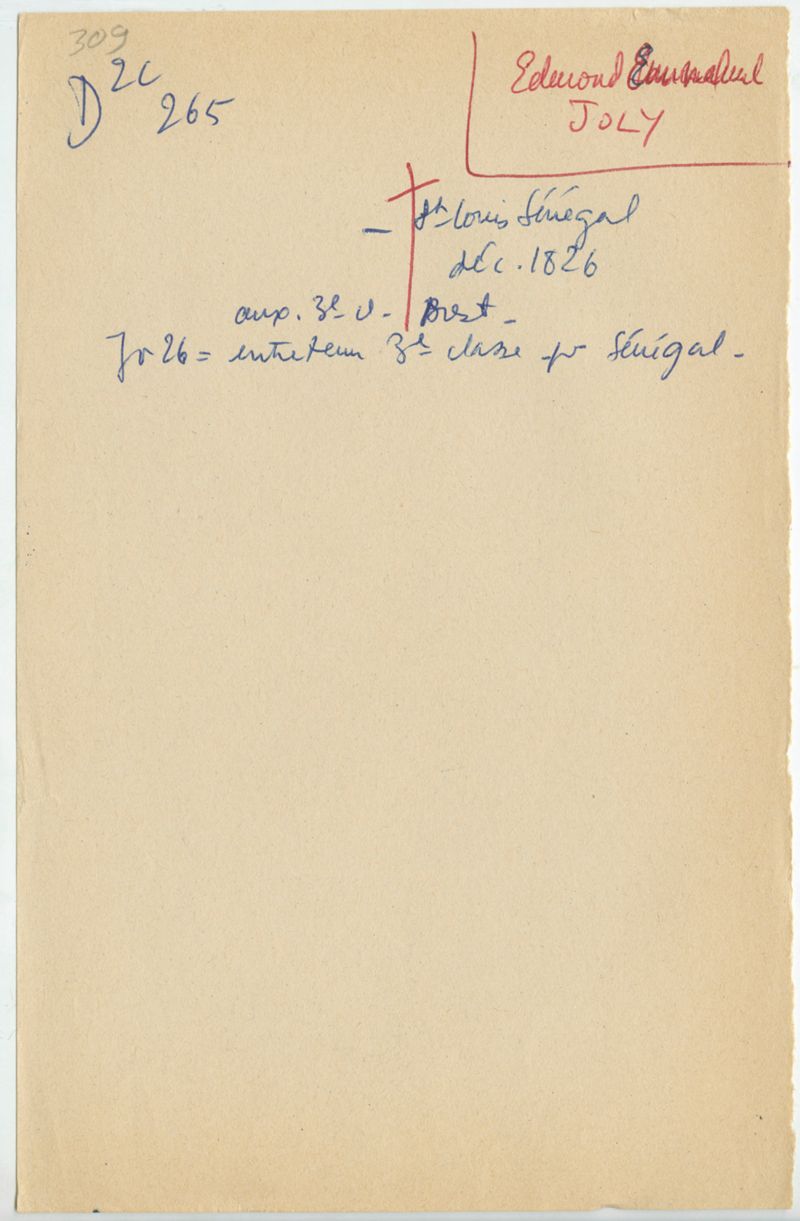 309
D 2C
265
Edmond Emmanuel
JOLY
- St-Louis Sénégal
déc. 1826
aux. 3e cl - Brest -
Jr 26 = entretenu 3e classe pr Sénégal -